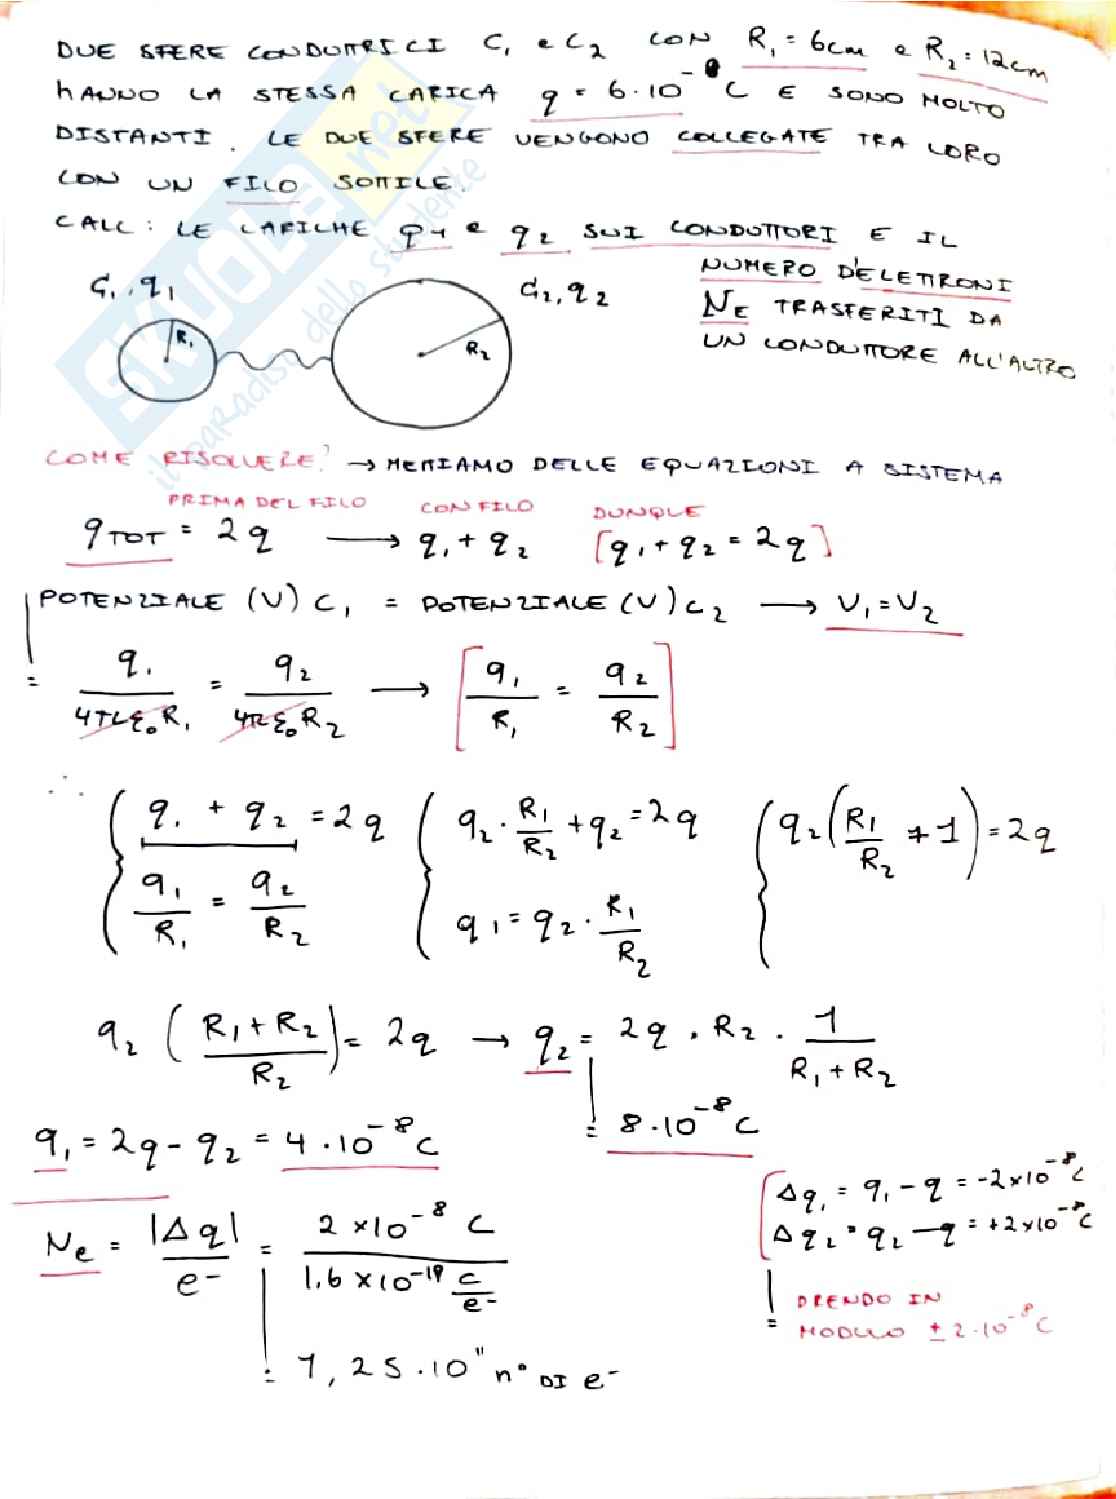 DUE SFERE CONDUTTRICI C₁ e C₂ CON R₁ = 6cm e R₂ = 12cm
HANNO LA STESSA CARICA q = 6·10⁻⁸ C E SONO MOLTO
DISTANTI. LE DUE SFERE VENGONO COLLEGATE TRA LORO
CON UN FILO SOTTILE.
CALC: LE CARICHE q₁ e q₂ SUI CONDUTTORI E IL
NUMERO D'ELETTRONI
Nₑ TRASFERITI DA
UN CONDUTTORE ALL'ALTRO
C₁, q₁
C₂, q₂
R₁
R₂
COME RISOLVERE? → METTIAMO DELLE EQUAZIONI A SISTEMA
PRIMA DEL FILO CON FILO DUNQUE
qTOT = 2q → q₁ + q₂ [q₁ + q₂ = 2q]
POTENZIALE (V) C₁ = POTENZIALE (V) C₂ → V₁ = V₂
= q₁/(4πε₀R₁) = q₂/(4πε₀R₂) → [q₁/R₁ = q₂/R₂]
{ q₁ + q₂ = 2q { q₂ · R₁/R₂ + q₂ = 2q { q₂(R₁/R₂ + 1) = 2q
q₁/R₁ = q₂/R₂ q₁ = q₂ · R₁/R₂
q₂ (R₁ + R₂/R₂) = 2q → q₂ = 2q · R₂ · 1/(R₁ + R₂)
= 8·10⁻⁸ C
q₁ = 2q - q₂ = 4·10⁻⁸ C
Δq₁ = q₁ - q = -2×10⁻⁸ C
Δq₂ = q₂ - q = +2×10⁻⁸ C
= PRENDO IN
MODULO ± 2·10⁻⁸ C
Nₑ = |Δq|/e⁻ = 2×10⁻⁸ C/(1.6×10⁻¹⁹ C/e⁻)
= 1,25·10¹¹ n° DI e⁻
SKUOLA.net
il paradiso dello studente